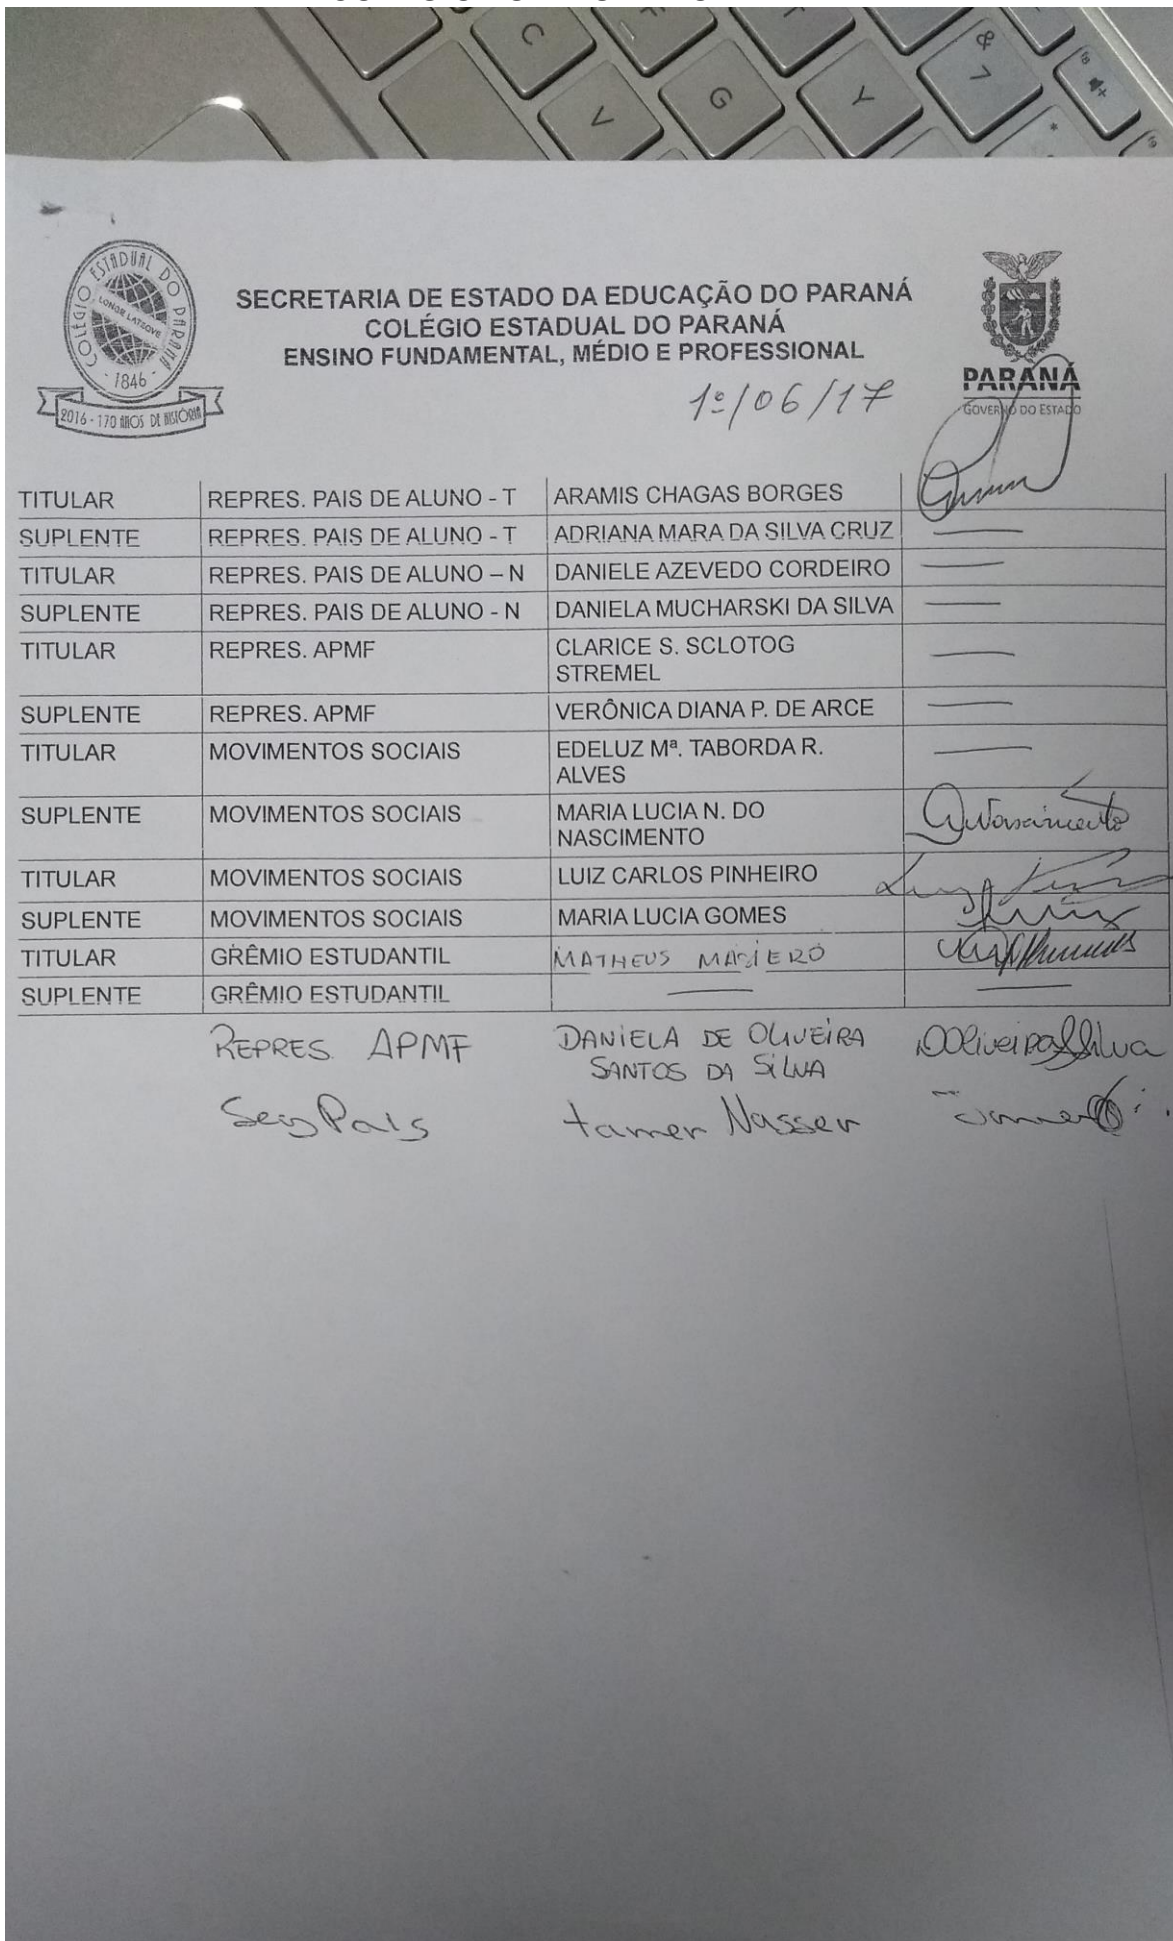 C F T & 7
V G Y *
COLÉGIO ESTADUAL DO PARANÁ
- 1846 -
2016 - 170 ANOS DE HISTÓRIA
SECRETARIA DE ESTADO DA EDUCAÇÃO DO PARANÁ
COLÉGIO ESTADUAL DO PARANÁ
ENSINO FUNDAMENTAL, MÉDIO E PROFESSIONAL
PARANÁ
GOVERNO DO ESTADO
1º/06/17
TITULAR REPRES. PAIS DE ALUNO - T ARAMIS CHAGAS BORGES
SUPLENTE REPRES. PAIS DE ALUNO - T ADRIANA MARA DA SILVA CRUZ
TITULAR REPRES. PAIS DE ALUNO – N DANIELE AZEVEDO CORDEIRO
SUPLENTE REPRES. PAIS DE ALUNO - N DANIELA MUCHARSKI DA SILVA
TITULAR REPRES. APMF CLARICE S. SCLOTOG
STREMEL
SUPLENTE REPRES. APMF VERÔNICA DIANA P. DE ARCE
TITULAR MOVIMENTOS SOCIAIS EDELUZ Mª. TABORDA R.
ALVES
SUPLENTE MOVIMENTOS SOCIAIS MARIA LUCIA N. DO
NASCIMENTO
TITULAR MOVIMENTOS SOCIAIS LUIZ CARLOS PINHEIRO
SUPLENTE MOVIMENTOS SOCIAIS MARIA LUCIA GOMES
TITULAR GRÊMIO ESTUDANTIL MATHEUS MASIERO
SUPLENTE GRÊMIO ESTUDANTIL
REPRES. APMF DANIELA DE OLIVEIRA
SANTOS DA SILVA
Seg Pais tamer Nasser